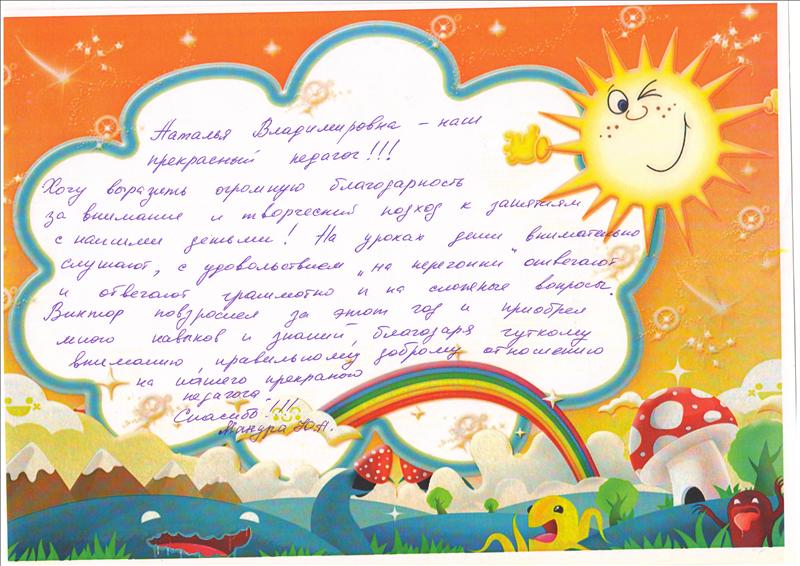 Наталья Владимировна - наш
прекрасный педагог!!!
Хочу выразить огромную благодарность
за внимание и творческий подход к занятиям
с нашими детьми! На уроках дети внимательно
слушают, с удовольствием „на перегонки" отвечают
и отвечают грамматно и на сложные вопросы.
Виктор повзрослел за этот год и приобрел
много навыков и знаний, благодаря чуткому
вниманию, правильному доброму отношению
на нашего прекраного
педагога
Спасибо!!!
Ю.А.